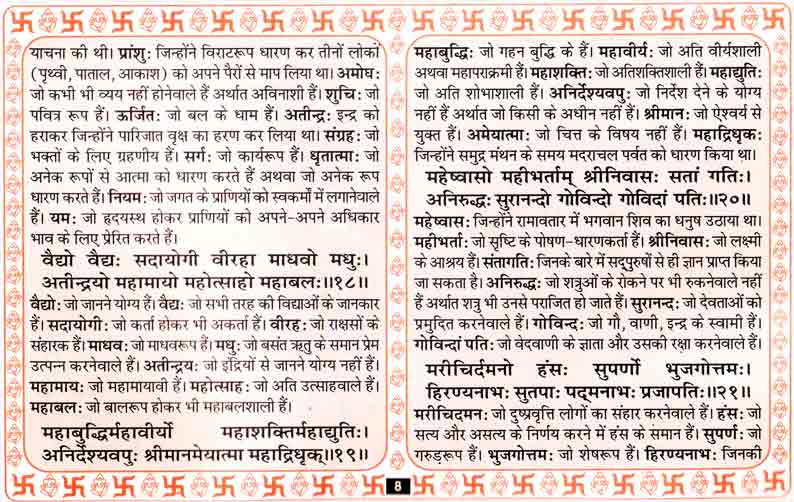 याचना की थी। प्रांशुः जिन्होंने विराटरूप धारण कर तीनों लोकों
(पृथ्वी, पाताल, आकाश) को अपने पैरों से माप लिया था। अमोघः
जो कभी भी व्यय नहीं होनेवाले हैं अर्थात अविनाशी हैं। शुचिः जो
पवित्र रूप हैं। ऊर्जितः जो बल के धाम हैं। अतीन्द्रः इन्द्र को
हराकर जिन्होंने पारिजात वृक्ष का हरण कर लिया था। संग्रहः जो
भक्तों के लिए ग्रहणीय हैं। सर्गः जो कार्यरूप हैं। धृतात्माः जो
अनेक रूपों से आत्मा को धारण करते हैं अथवा जो अनेक रूप
धारण करते हैं। नियमः जो जगत के प्राणियों को स्वकर्मों में लगानेवाले
हैं। यमः जो हृदयस्थ होकर प्राणियों को अपने-अपने अधिकार
भाव के लिए प्रेरित करते हैं।
वैद्यो वैद्यः सदायोगी वीरहा माधवो मधुः।
अतीन्द्रयो महामायो महोत्साहो महाबलः॥१८॥
वैद्योः जो जानने योग्य हैं। वैद्यः जो सभी तरह की विद्याओं के जानकार
हैं। सदायोगीः जो कर्ता होकर भी अकर्ता हैं। वीरहः जो राक्षसों के
संहारक हैं। माधवः जो माधवरूप हैं। मधुः जो बसंत ऋतु के समान प्रेम
उत्पन्न करनेवाले हैं। अतीन्द्रयः जो इंद्रियों से जानने योग्य नहीं हैं।
महामायः जो महामायावी हैं। महोत्साहः जो अति उत्साहवाले हैं।
महाबलः जो बालरूप होकर भी महाबलशाली हैं।
महाबुद्धिर्महावीर्यो महाशक्तिर्महाद्युतिः।
अनिर्देश्यवपुः श्रीमानमेयात्मा महाद्रिधृक्॥१९॥
महाबुद्धिः जो गहन बुद्धि के हैं। महावीर्यः जो अति वीर्यशाली
अथवा महापराक्रमी हैं। महाशक्तिः जो अतिशक्तिशाली हैं। महाद्युतिः
जो अति शोभाशाली हैं। अनिर्देश्यवपुः जो निर्देश देने के योग्य
नहीं हैं अर्थात जो किसी के अधीन नहीं हैं। श्रीमानः जो ऐश्वर्य से
युक्त हैं। अमेयात्माः जो चित्त के विषय नहीं हैं। महाद्रिधृकः
जिन्होंने समुद्र मंथन के समय मदराचल पर्वत को धारण किया था।
महेष्वासो महीभर्ताम् श्रीनिवासः सतां गतिः।
अनिरुद्धः सुरानन्दो गोविन्दो गोविदां पतिः॥२०॥
महेष्वासः जिन्होंने रामावतार में भगवान शिव का धनुष उठाया था।
महीभर्ताः जो सृष्टि के पोषण-धारणकर्ता हैं। श्रीनिवासः जो लक्ष्मी
के आश्रय हैं। संतागतिः जिनके बारे में सद्पुरुषों से ही ज्ञान प्राप्त किया
जा सकता है। अनिरुद्धः जो शत्रुओं के रोकने पर भी रुकनेवाले नहीं
हैं अर्थात शत्रु भी उनसे पराजित हो जाते हैं। सुरानन्दः जो देवताओं को
प्रमुदित करनेवाले हैं। गोविन्दः जो गौ, वाणी, इन्द्र के स्वामी हैं।
गोविन्दां पतिः जो वेदवाणी के ज्ञाता और उसकी रक्षा करनेवाले हैं।
मरीचिर्दमनो हंसः सुपर्णो भुजगोत्तमः।
हिरण्यनाभः सुतपाः पद्मनाभः प्रजापतिः॥२१॥
मरीचिदमनः जो दुष्प्रवृत्ति लोगों का संहार करनेवाले हैं। हंसः जो
सत्य और असत्य के निर्णय करने में हंस के समान हैं। सुपर्णः जो
गरुड़रूप हैं। भुजगोत्तमः जो शेषरूप हैं। हिरण्यनाभः जिनकी
8